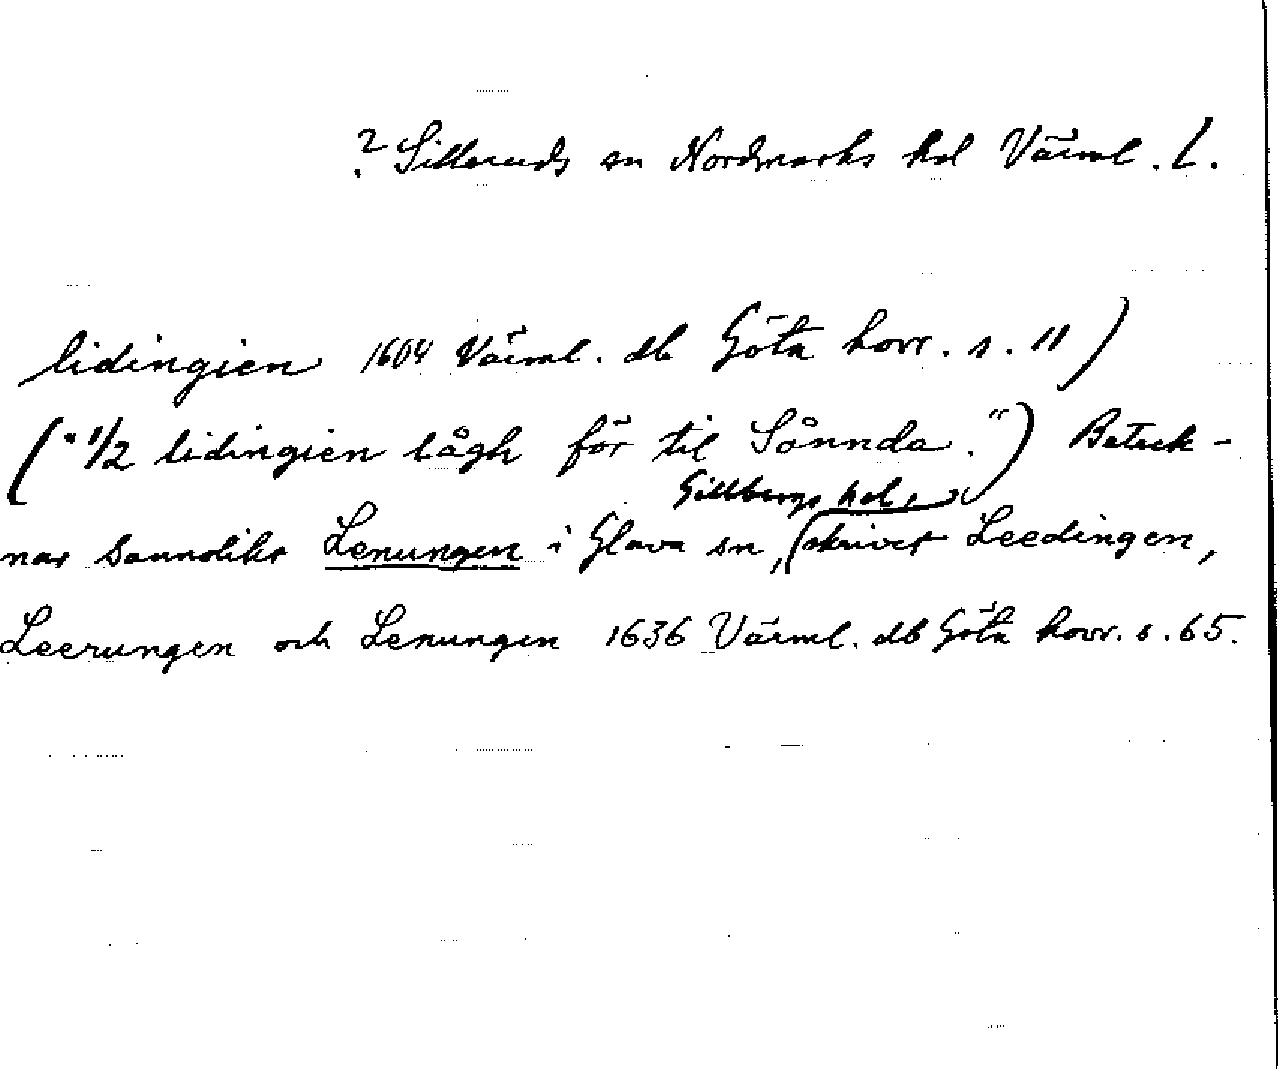 ? Silleruds sn Nordmarks hd Värml. l.
lidingien 1604 Värml. db Göta hovr. s. 11)
("1/2 lidingien lågh för til Sånnda.") Beteck-
Gillbergs hd,
nar sannolikt Lenungen i Glava sn, (skrivet Leedingen,
Leerungen och Lenungen 1636 Värml. db Göta hovr. s. 65.